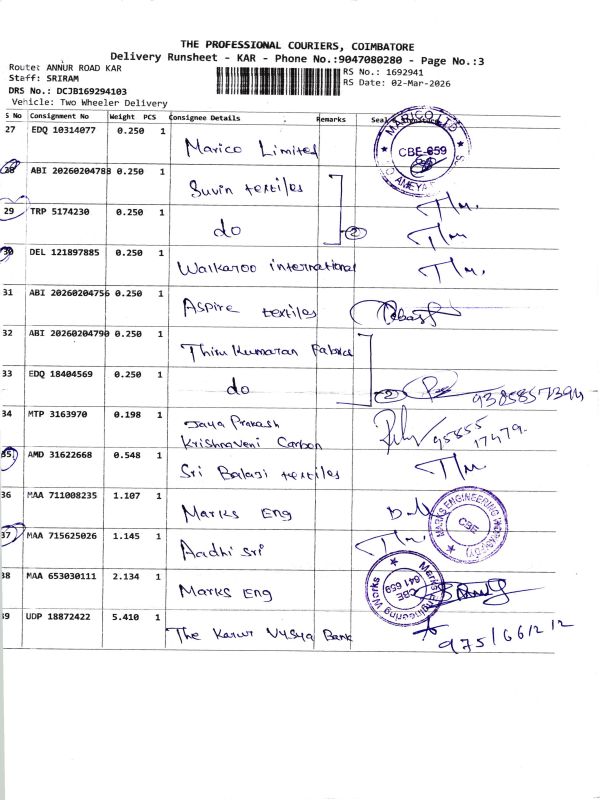 THE PROFESSIONAL COURIERS, COIMBATORE
Delivery Runsheet - KAR - Phone No.:9047080280 - Page No.:3
Route: ANNUR ROAD KAR
Staff: SRIRAM
DRS No.: DCJB169294103
Vehicle: Two Wheeler Delivery
RS No.: 1692941
RS Date: 02-Mar-2026
S No Consignment No Weight PCS Consignee Details Remarks Seal
27 EDQ 10314077 0.250 1 Marico Limited
MARICO LTD CBE-659
28 ABI 20260204788 0.250 1 Suvin textiles
29 TRP 5174230 0.250 1 do 2
30 DEL 121897885 0.250 1 Walkaroo international
31 ABI 20260204756 0.250 1 Aspire textiles
32 ABI 20260204790 0.250 1 Thiru Kumaran Fabrics
33 EDQ 18404569 0.250 1 do 2 9385857394
34 MTP 3163970 0.198 1 Jaya Prakash
Krishnaveni Carbon 95855
17479.
35 AMD 31622668 0.548 1 Sri Balaji textiles
36 MAA 711008235 1.107 1 Marks Eng
MARKS ENGINEERING WORKS CBE
37 MAA 715625026 1.145 1 Aadhi Sri
38 MAA 653030111 2.134 1 Marks Eng
Marks Engineering Works CBE 641 659
39 UDP 18872422 5.410 1 The Karur Vysya Bank
9751661212